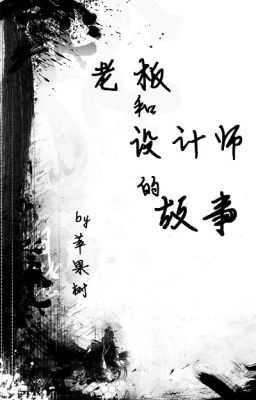 老板
和
设计师
的
故事
by 苹果树